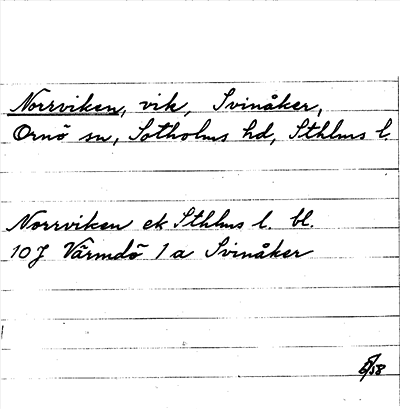 Norrviken, vik, Svinåker,
Ornö sn, Sotholms hd, Sthlms l.
Norrviken ek Sthlms l. bl.
10J Värmdö 1a Svinåker